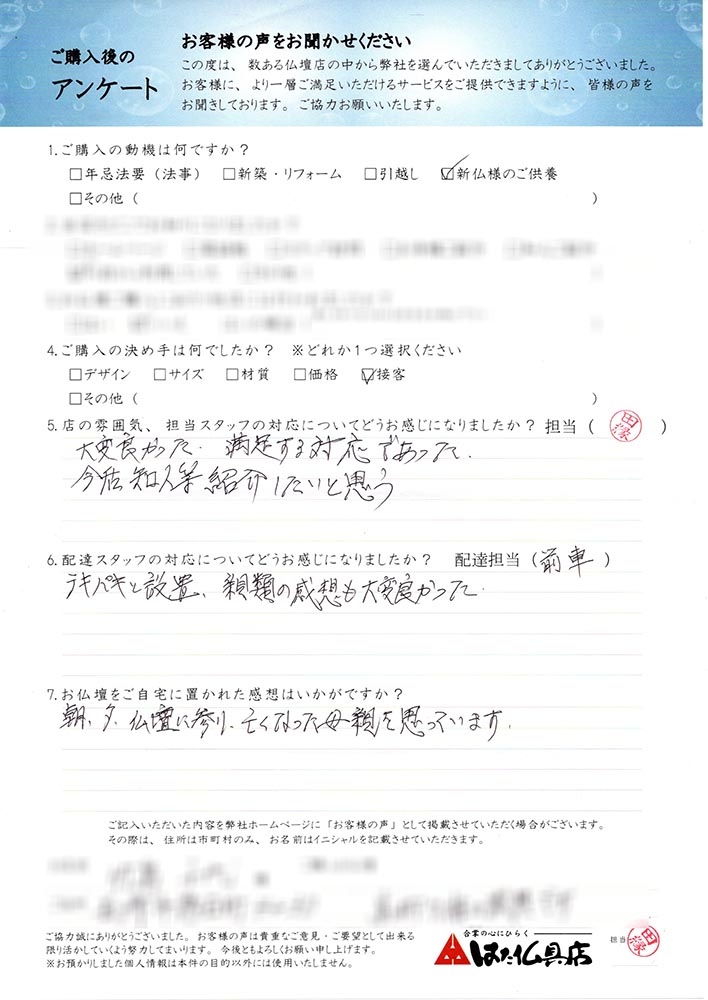 ご購入後の
アンケート
お客様の声をお聞かせください
この度は、数ある仏壇店の中から弊社を選んでいただきましてありがとうございました。
お客様に、より一層ご満足いただけるサービスをご提供できますように、皆様の声を
お聞きしております。ご協力お願いいたします。
1.ご購入の動機は何ですか？
□年忌法要（法事） □新築・リフォーム □引越し ☑新仏様のご供養
□その他（ ）
4.ご購入の決め手は何でしたか？ ※どれか1つ選択ください
□デザイン □サイズ □材質 □価格 ☑接客
□その他（ ）
5.店の雰囲気、担当スタッフの対応についてどうお感じになりましたか？ 担当（ ）
大変良かった. 満足する対応であった.
今后知人等紹介したいと思う
6.配達スタッフの対応についてどうお感じになりましたか？ 配達担当（前車）
テキパキと設置、親類の感想も大変良かった.
7.お仏壇をご自宅に置かれた感想はいかがですか？
朝、夕、仏壇に参り、亡くなった母親を思っています.
ご記入いただいた内容を弊社ホームページに「お客様の声」として掲載させていただく場合がございます。
その際は、住所は市町村のみ、お名前はイニシャルを記載させていただきます。
ご協力誠にありがとうございました。お客様の声は貴重なご意見・ご要望として出来る
限り活かしていくよう努力してまいります。今後ともよろしくお願い申し上げます。
※お預かりしました個人情報は本件の目的以外には使用いたしません。
合掌の心にひらく
はた仏具店
担当